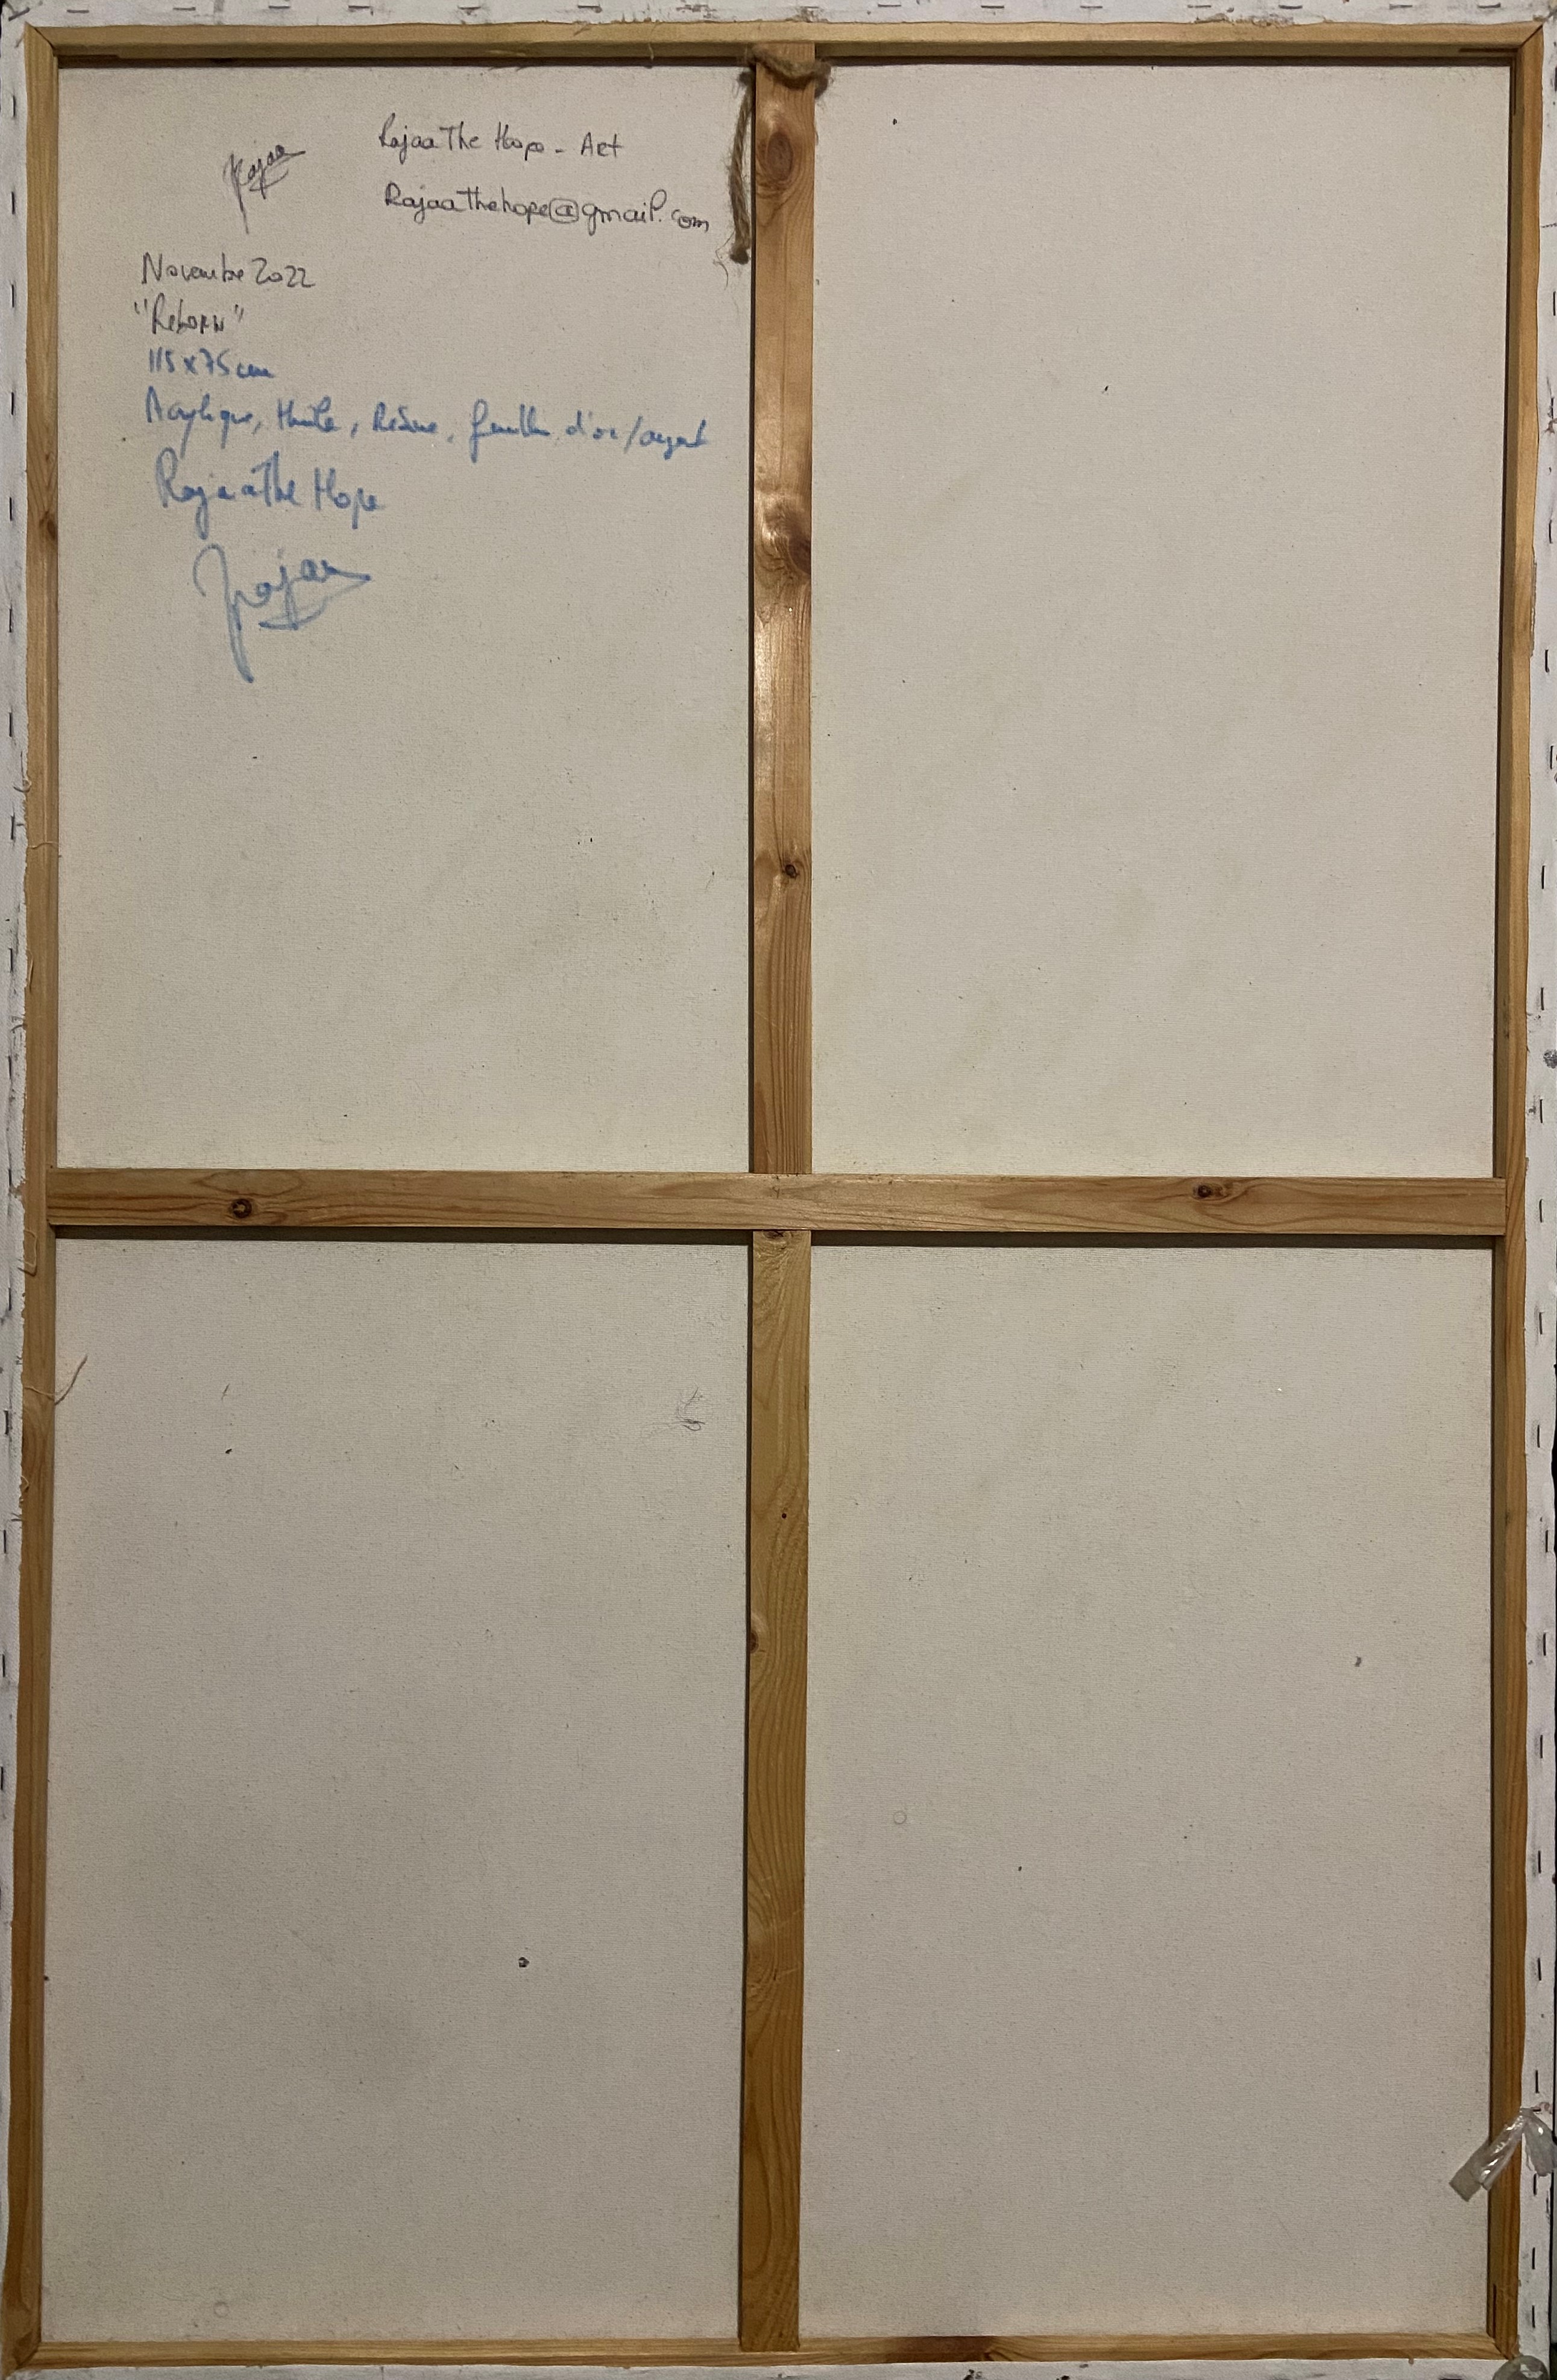 Rajaa
Rajaa The Hope - Art
Rajaathehope@gmail.com
Novembre 2022
"Reborn"
115x75cm
Acrylique, Huile, Résine, feuilles d'or/argent
Rajaa The Hope
Rajaa